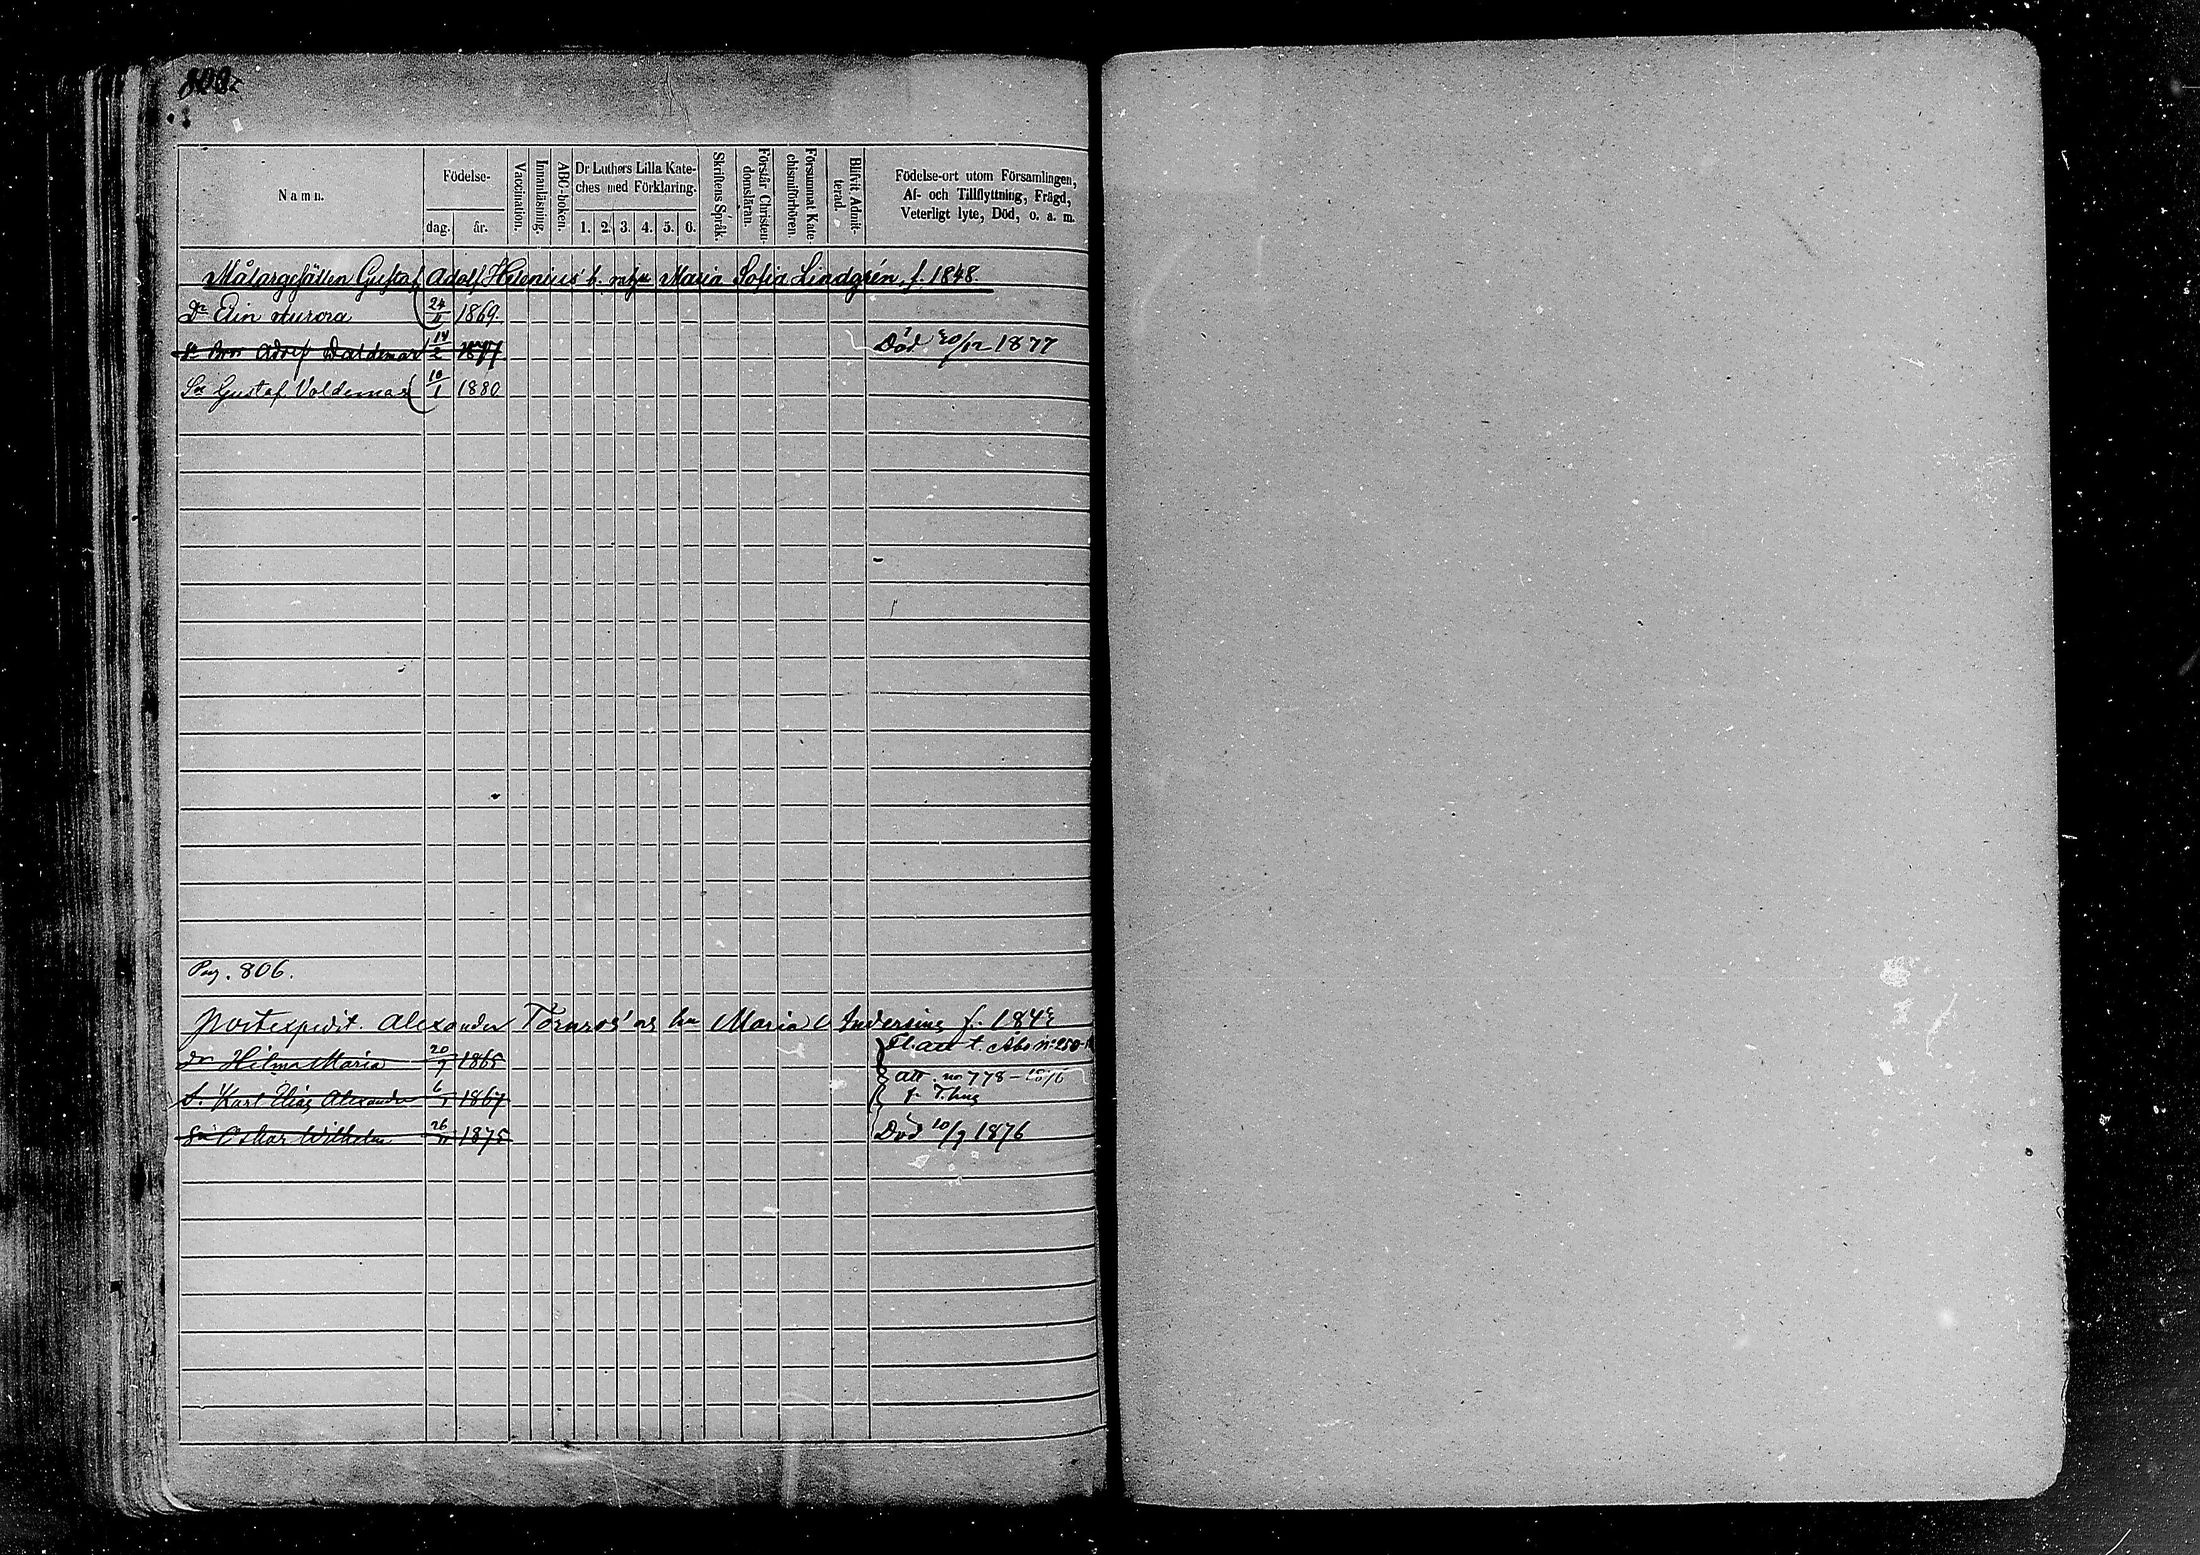 Namn.
Födelse-
dag. år.
Vaccination.
Innanläsning.
ABC-boken.
Dr Luthers Lilla Kate-
ches med Förklaring.
1. 2. 3. 4. 5. 6.
Skriftens Språk.
Förstår Christen-
domsläran.
Försummat Kate-
chismiförhören.
Blifvit Admit-
terad.
Födelse-ort utom Församlingen,
Af- och Tillflyttning, Frägd,
Veterligt lyte, Död, o. a. m.
Målaregesällen Gustaf Adolf Helenius' h. Maria Sofia Lindgrén, f. 1848
Dr Elin Aurora 24 1869.
Adolf Valdemar 14/2 1877 Död 20/12 1877
Sn Gustaf Voldemar 10/1 1880
Pag. 806.
Postexpedit. Alexander Törnroos' hu Maria
dr Hilma Maria 20/9 1865 t. Åbo no 250
s. Karl Elias Alexander 6 1867 att. no 778 - 1876
Sn Oskar Wilhelm 26 1875 Död 10/9 1876